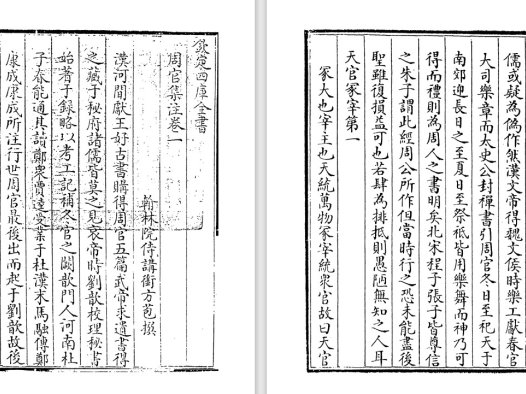 欽定四庫全書
周官集注卷一
翰林院侍講銜方苞撰
漢河間獻王好古書購得周官五篇武帝求遺書得
之藏于秘府諸儒皆莫之見哀帝時劉歆校理秘書
始著于録略以考工記補冬官之闕歆門人河南杜
子春能通其讀鄭衆賈逵受業于杜漢末馬融傳鄭
康成康成所注行世周官最後出而起于劉歆故後
儒或疑為偽作然漢文帝得魏文侯時樂工獻春官
大司樂章而太史公封禪書引周官冬日至祀天于
南郊迎長日之至夏日至祭祗皆用樂舞而神乃可
得而禮則為周人之書明矣北宋程子張子皆尊信
之朱子謂此經周公所作但當時行之恐未能盡後
聖雖復損益可也若肆為排抵則愚陋無知之人耳
天官冢宰第一
冢大也宰主也天統萬物冢宰統衆官故曰天官